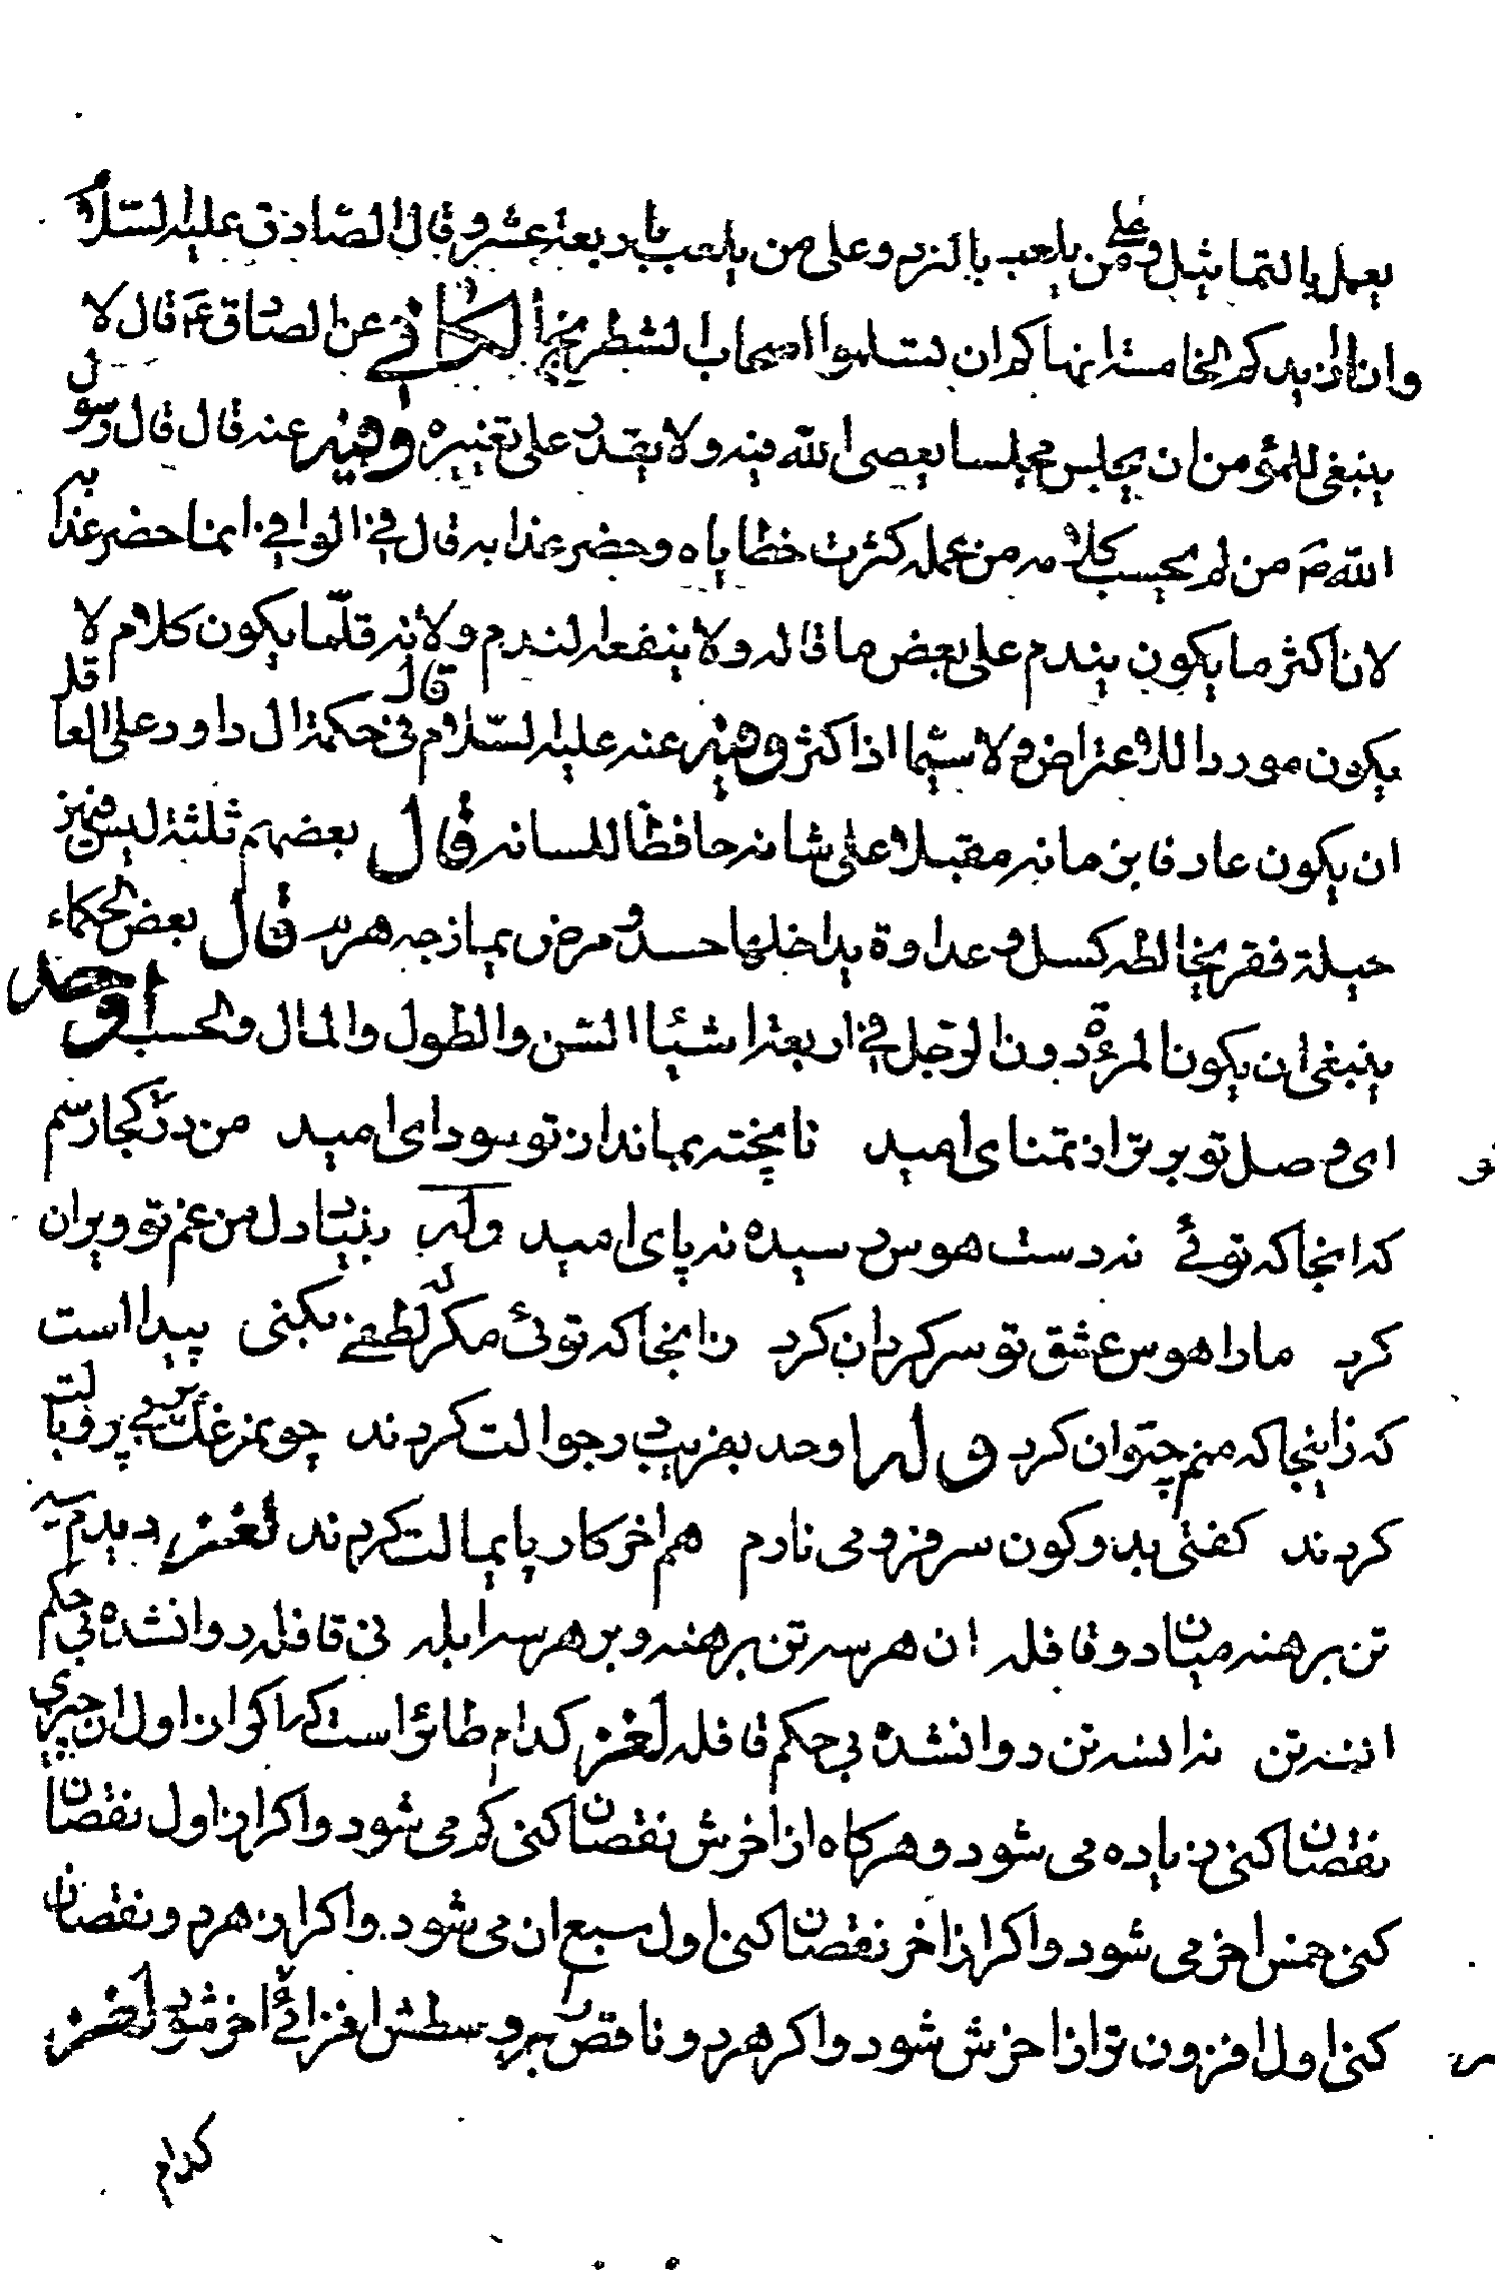 يعمل بالتماثيل وعلى من يلعب بالنرد وعلى من يلعب باربعة عشر وقال الصادق عليه السلام
وانا ازيدكم الخامسة انهاكم ان تسلموا اصحاب الشطرنج الكافي عن الصادق ع قال لا
ينبغي للمؤمن ان يجلس مجلسا يعصى الله فيه ولا يقدر على تغييره وفيه عنه قال قال رسول
الله ص من لم يحسب كلامه من عمله كثرت خطاياه وحضر عذابه قال في الوافي انما حضر عذابه
لان اكثر ما يكون يندم على بعض ما قاله ولا ينفعه الندم ولانه قلّما يكون كلام لا
يكون موردا للاعتراض ولا سيّما اذا كثر وفيه عنه عليه السّلام قال في حكمة ال داود على العاقل
ان يكون عارفا بزمانه مقبلا على شانه حافظا للسانه قال بعضهم ثلثة ليس فيهن
حيلة فقر يخالطه كسل وعداوة يداخلها حسد ومرض يمازجه هرم قال بعض الحكماء
ينبغي ان يكون المرءة دون الرّجل في اربعة اشياء السّن والطول والمال والحسب اوحد
ای وصل تو برتر از تمنای امید ناپخته بماند از تو سودای امید من در تو کجا رسم
که انجا که توئی نه دست هوس رسیده نه پای امید وله بنیاد دل من غم تو ویران
کرد ما را هوس عشق تو سرکردان کرد زانجا که توئی مکر که لطفی بکنی پیدا است
که زاینجا که منم چتوان کرد وله اوحد بفریب در جوالت کردند چو مرغک بی پر و بالت
کردند کفتی بدو کون سر فرو می نارم هم اخر کار پایمالت کردند لغز دیدم سه
تن برهنه میان دو قافله ان هر سه تن برهنه و بر هر سر ابله نی قافله روا نشده بی حکم
انسه تن نه انسه تن روا نشده بی حکم قافله لغز کدام طائر است که اکر از اول ان چیزی
نقصان کنی زیاده می شود و هرکاه از اخرش نقصان کنی کم می شود و اکر از اول نقصان
کنی خمس اخر می شود و اکر از اخر نقصان کنی اول سبع ان می شود و اکر از هر دو نقصان
کنی اول افزون تر از اخرش شود و اکر هر دو ناقص وسطش افزائی اخر لغز
کدام